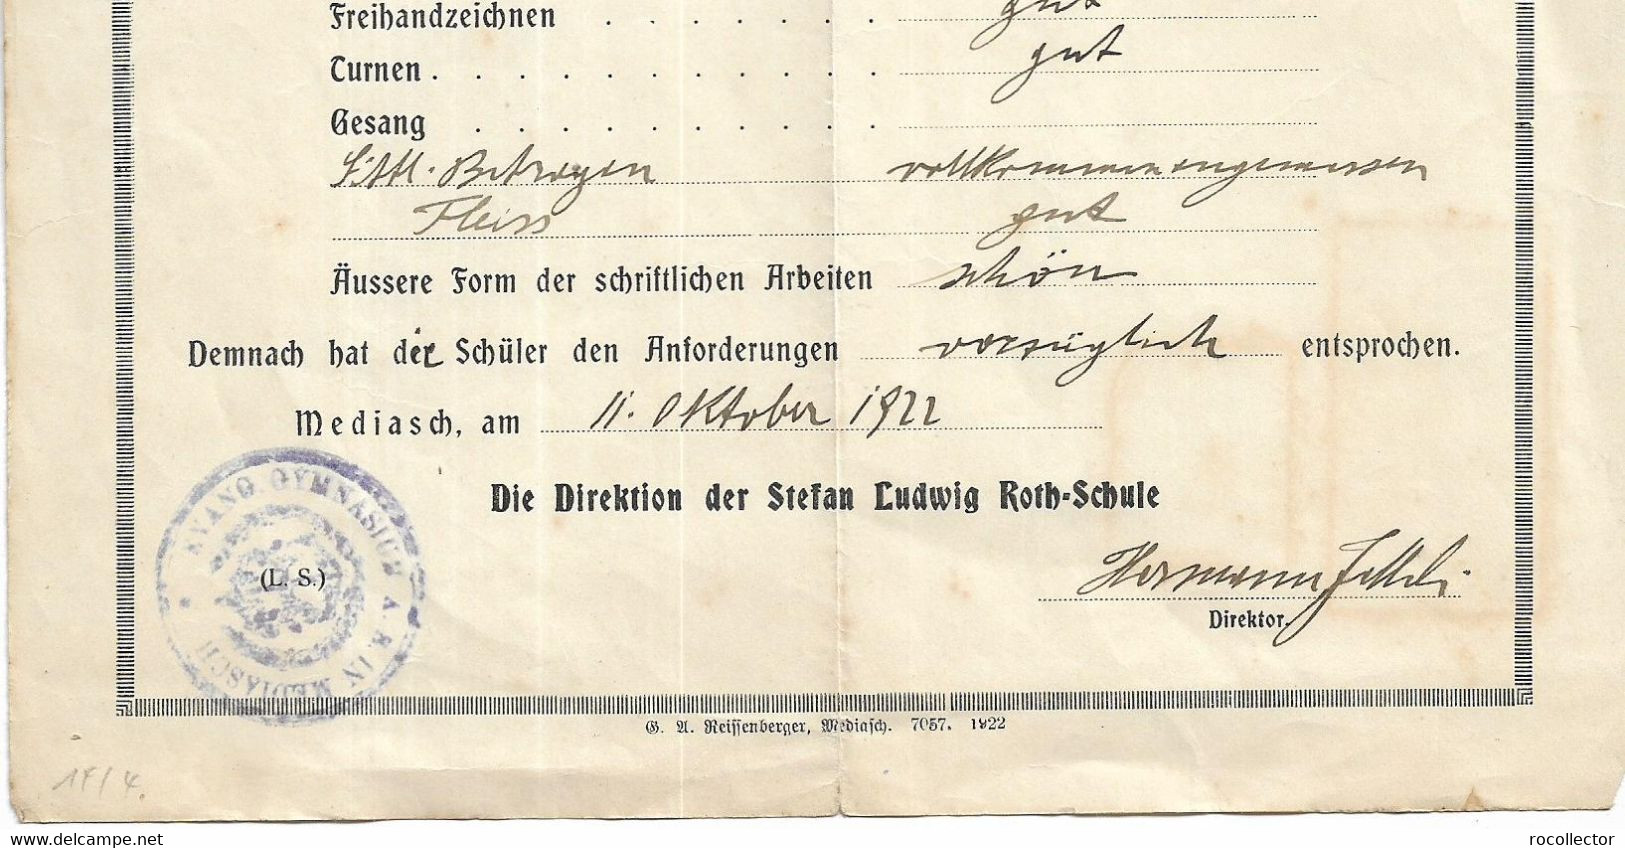 Freihandzeichnen . . . . . . . gut
Turnen . . . . . . . . . . . gut
Gesang . . . . . . . . . .
Sittl. Betragen vollkommen angemessen
Fleiss gut
Äussere Form der schriftlichen Arbeiten schön
Demnach hat der Schüler den Anforderungen vorzüglich entsprochen.
Mediasch, am 11. Oktober 1922
Die Direktion der Stefan Ludwig Roth-Schule
EVANG. GYMNASIUM A. B. IN MEDIASCH
(L. S.)
Hermann
Direktor.
G. A. Reissenberger, Mediasch. 7057. 1922
www.delcampe.net
rocollector